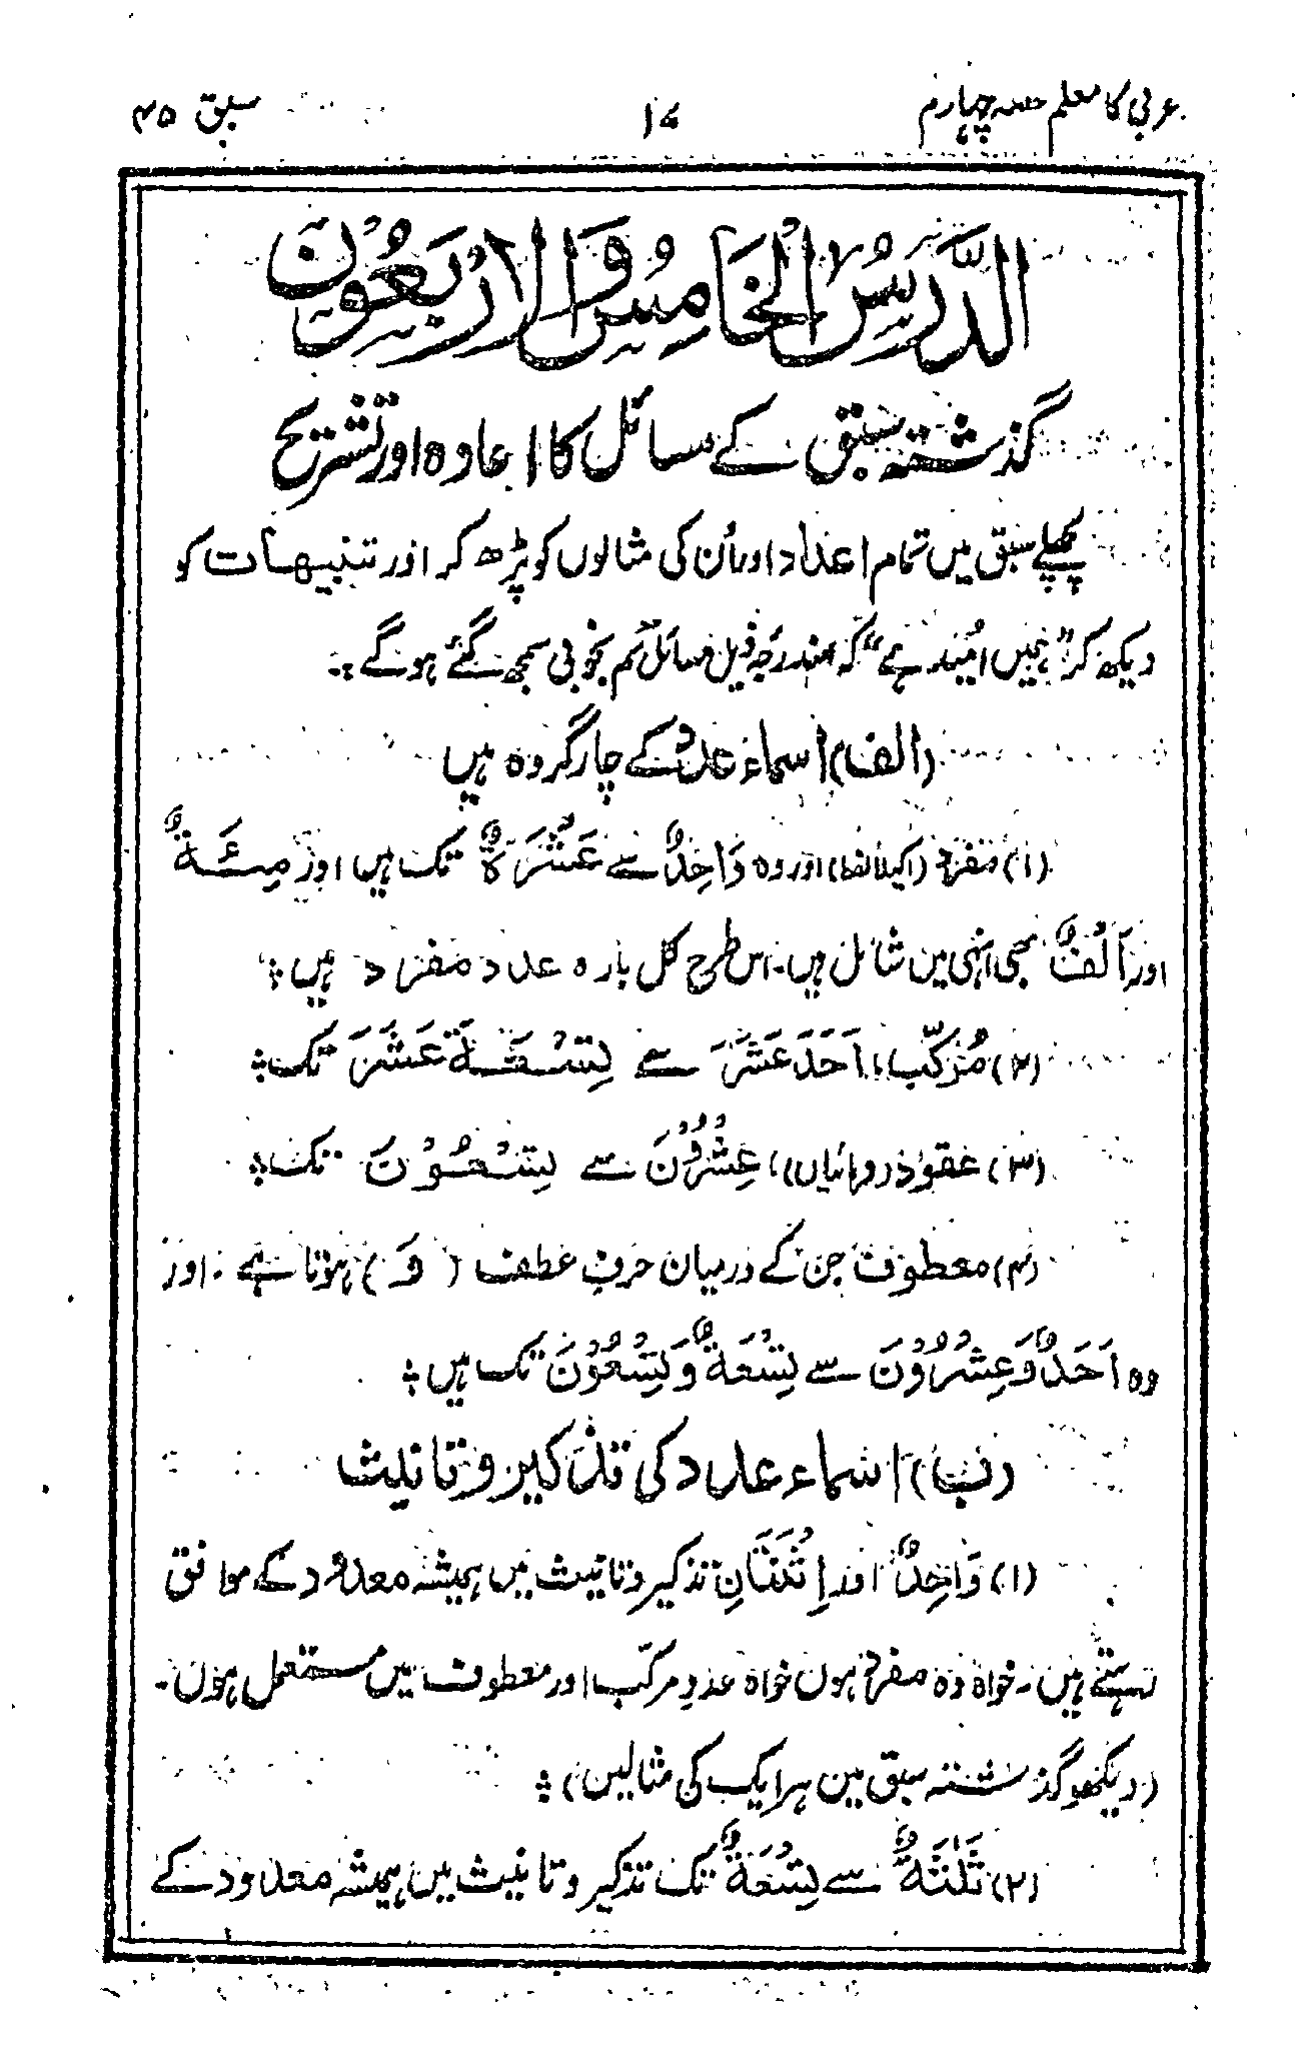 عربی کا معلم حصہ چہارم ۱۷ سبق ۴۵
الدَّرْسُ الْخَامِسُ وَالْاَرْبَعُوْنَ
گذشتہ سبق کے مسائل کا اعادہ اور تشریح
پچھلے سبق میں تمام اعداد اور اُن کی مثالوں کو پڑھ کر اور تنبیہات کو
دیکھ کر ہمیں اُمید ہے کہ مندرجہ ذیل مسائل تم بخوبی سمجھ گئے ہوگے :-
(الف) اسماء عدد کے چار گروہ ہیں
(۱) مفرد (اکیلا لفظ) اور وہ وَاحِدٌ سے عَشَرَةٌ تک ہیں اور مِئَةٌ
اور اَلْفٌ بھی انہی میں شامل ہیں۔ اس طرح کل بارہ عدد مفرد ہیں ÷
(۲) مُرَکَّب، اَحَدَ عَشَرَ سے تِسْعَةَ عَشَرَ تک ÷
(۳) عقود (دہائیاں)، عِشْرُوْنَ سے تِسْعُوْنَ تک ÷
(۴) معطوف جن کے درمیان حرفِ عطف (وَ) ہوتا ہے۔ اور
وہ اَحَدٌ وَعِشْرُوْنَ سے تِسْعَةٌ وَتِسْعُوْنَ تک ہیں ÷
(ب) اسماء عدد کی تذکیر و تانیث
(۱) وَاحِدٌ اور اِثْنَانِ تذکیر و تانیث میں ہمیشہ معدود کے موافق
رہتے ہیں۔ خواہ وہ مفرد ہوں خواہ عددِ مرکّب اور معطوف میں مستعمل ہوں۔
(دیکھو گذشتہ سبق میں ہر ایک کی مثالیں) ÷
(۲) ثَلٰثَةٌ سے تِسْعَةٌ تک تذکیر و تانیث میں ہمیشہ معدود کے